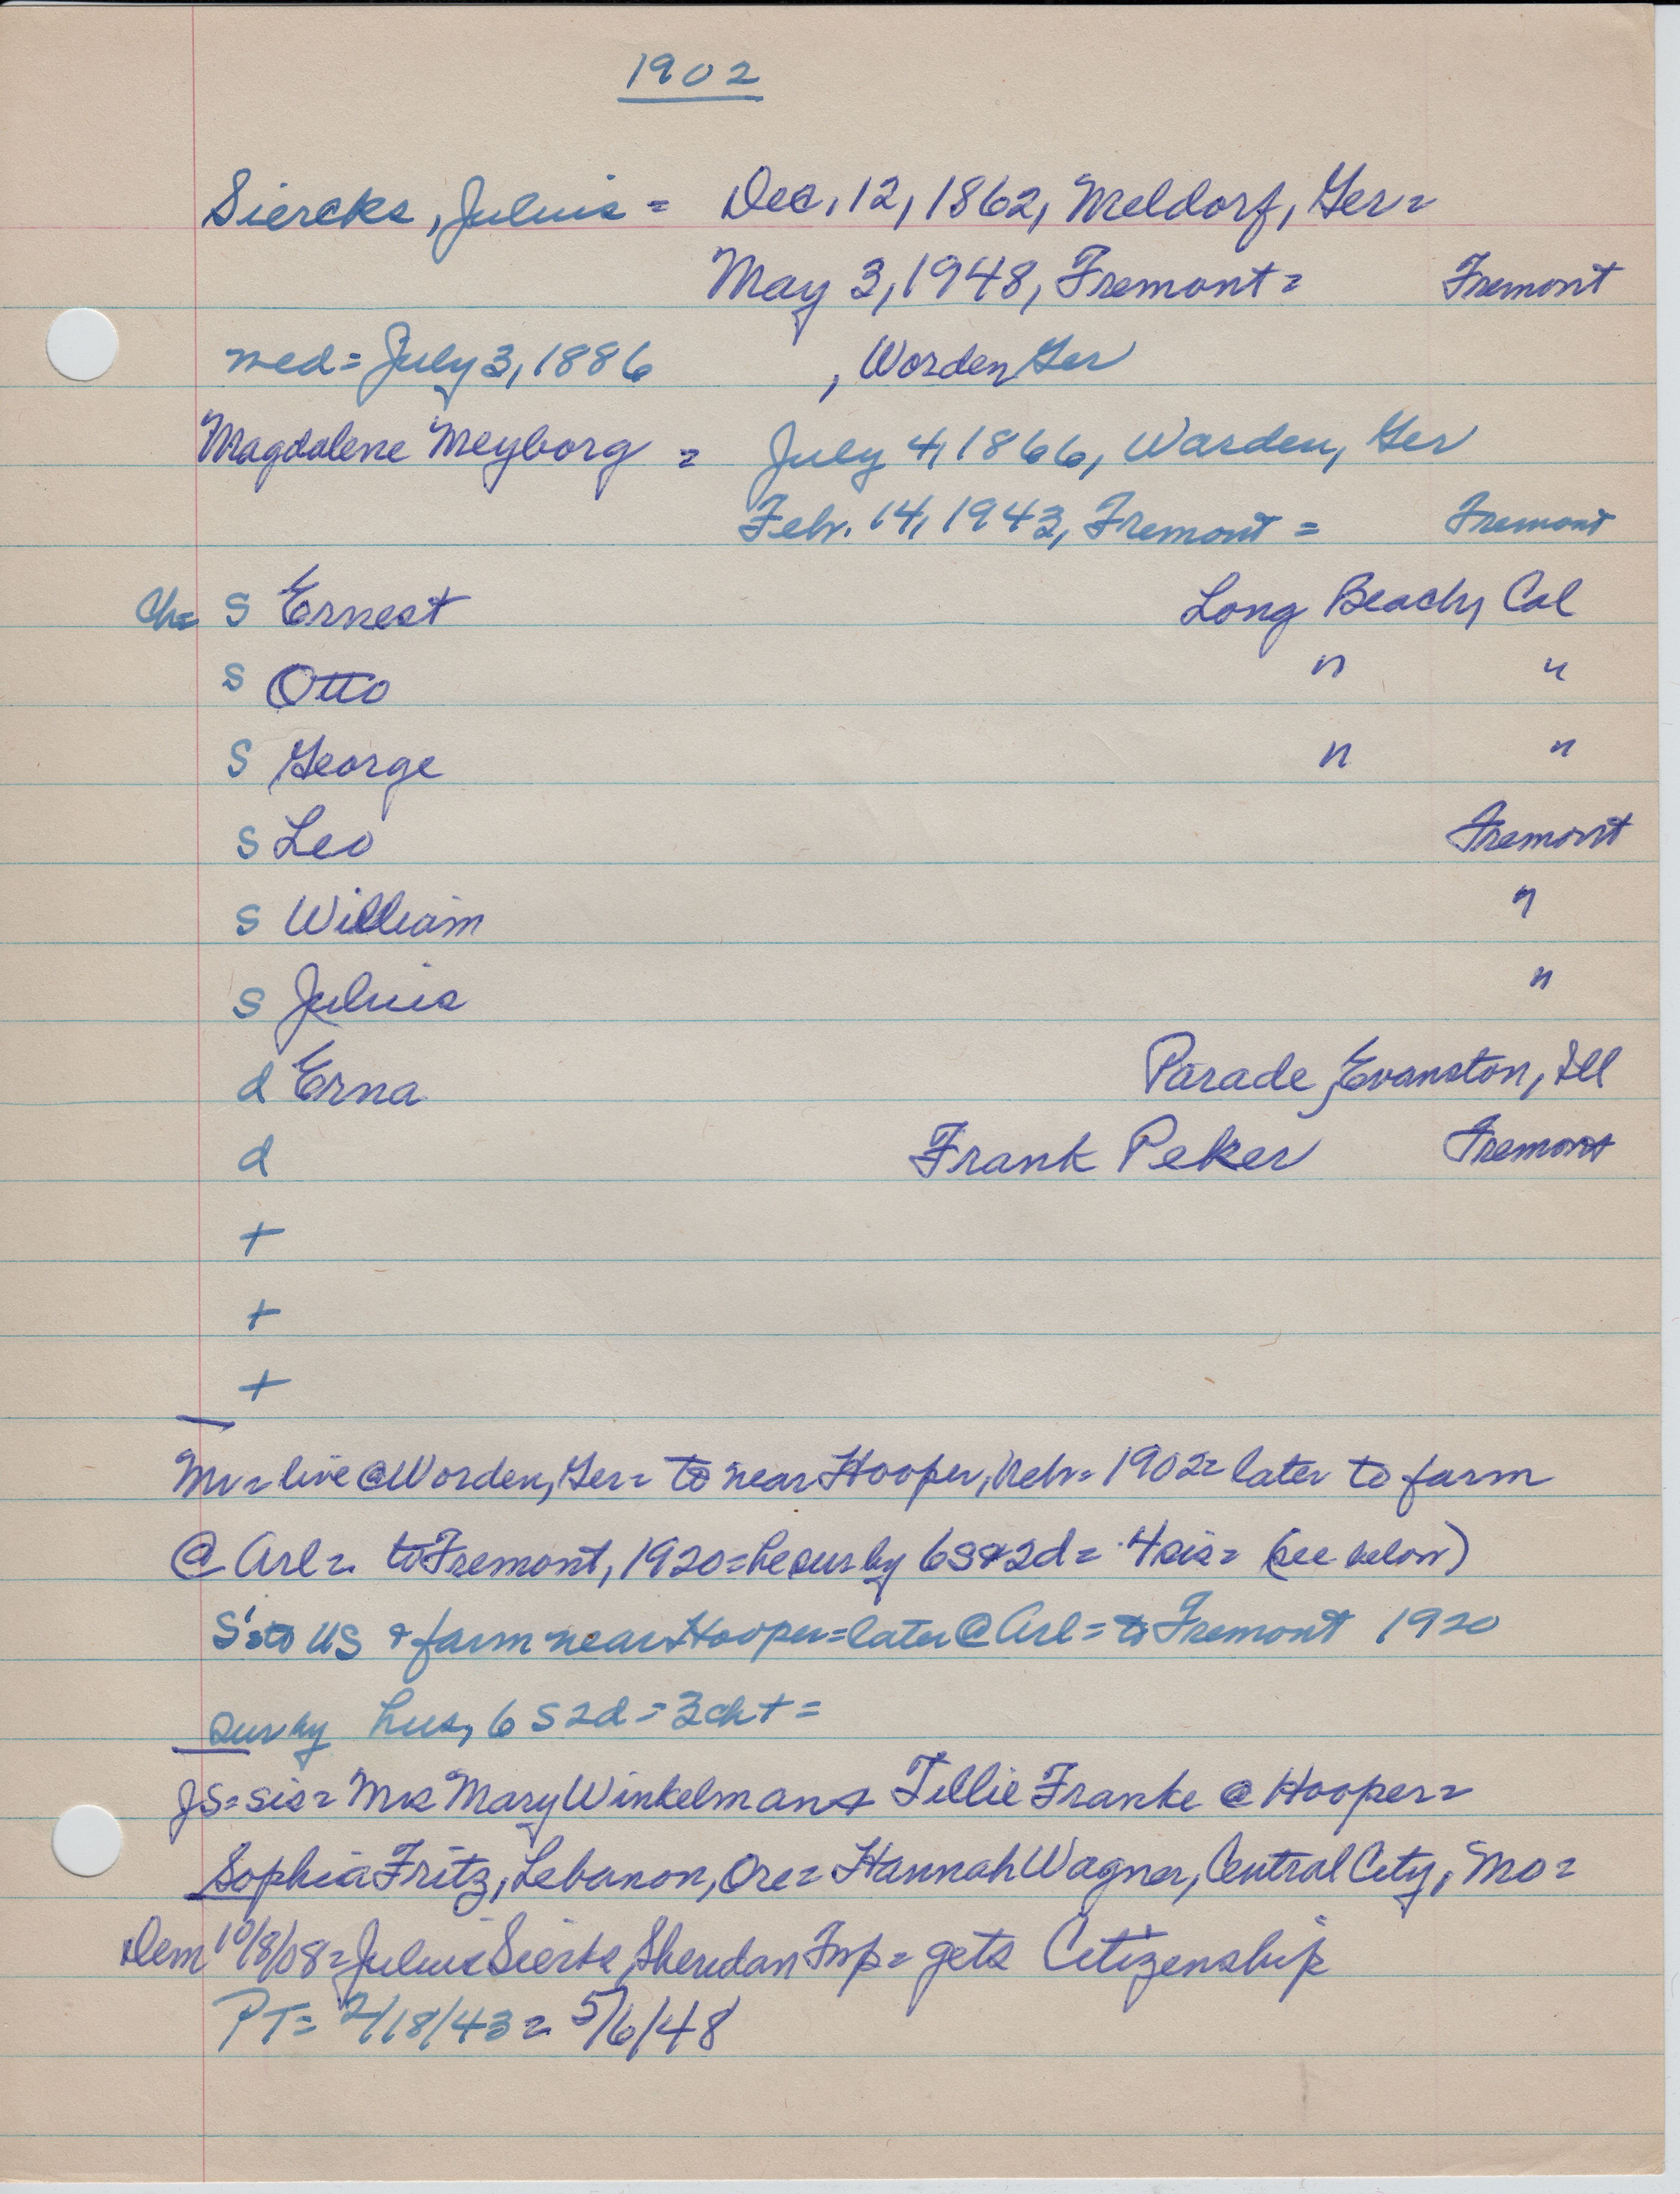 1902
Siercks, Julius = Dec. 12, 1862, Meldorf, Ger =
May 3, 1948, Fremont = Fremont
wed = July 3, 1886 , Worden Ger
Magdalene Meyborg = July 4, 1866, Warden, Ger
Febr. 14, 1943, Fremont = Fremont
Ch= S Ernest Long Beach, Cal
S Otto " "
S George " "
S Leo Fremont
S William "
S Julius "
d Erna Parade, Evanston, Ill
d Frank Peker Fremont
+
+
+
live @ Worden, Ger = to near Hooper, Nebr = 1902 = later to farm
@ Arl = to Fremont, 1920 = he sur by 6S & 2d = 4 sis = (see below)
S's to US & farm near Hooper = later @ Arl = to Fremont 1920
sur by hus, 6 S 2d = 3 ch + =
JS = sis = Mrs Mary Winkelman & Tillie Franke @ Hooper =
Sophia Fritz, Lebanon, Ore = Hannah Wagner, Central City, Mo =
Dem 10/8/08 = Julius Sierks, Sheridan Twp = gets Citizenship
PT = 2/18/43 = 5/6/48